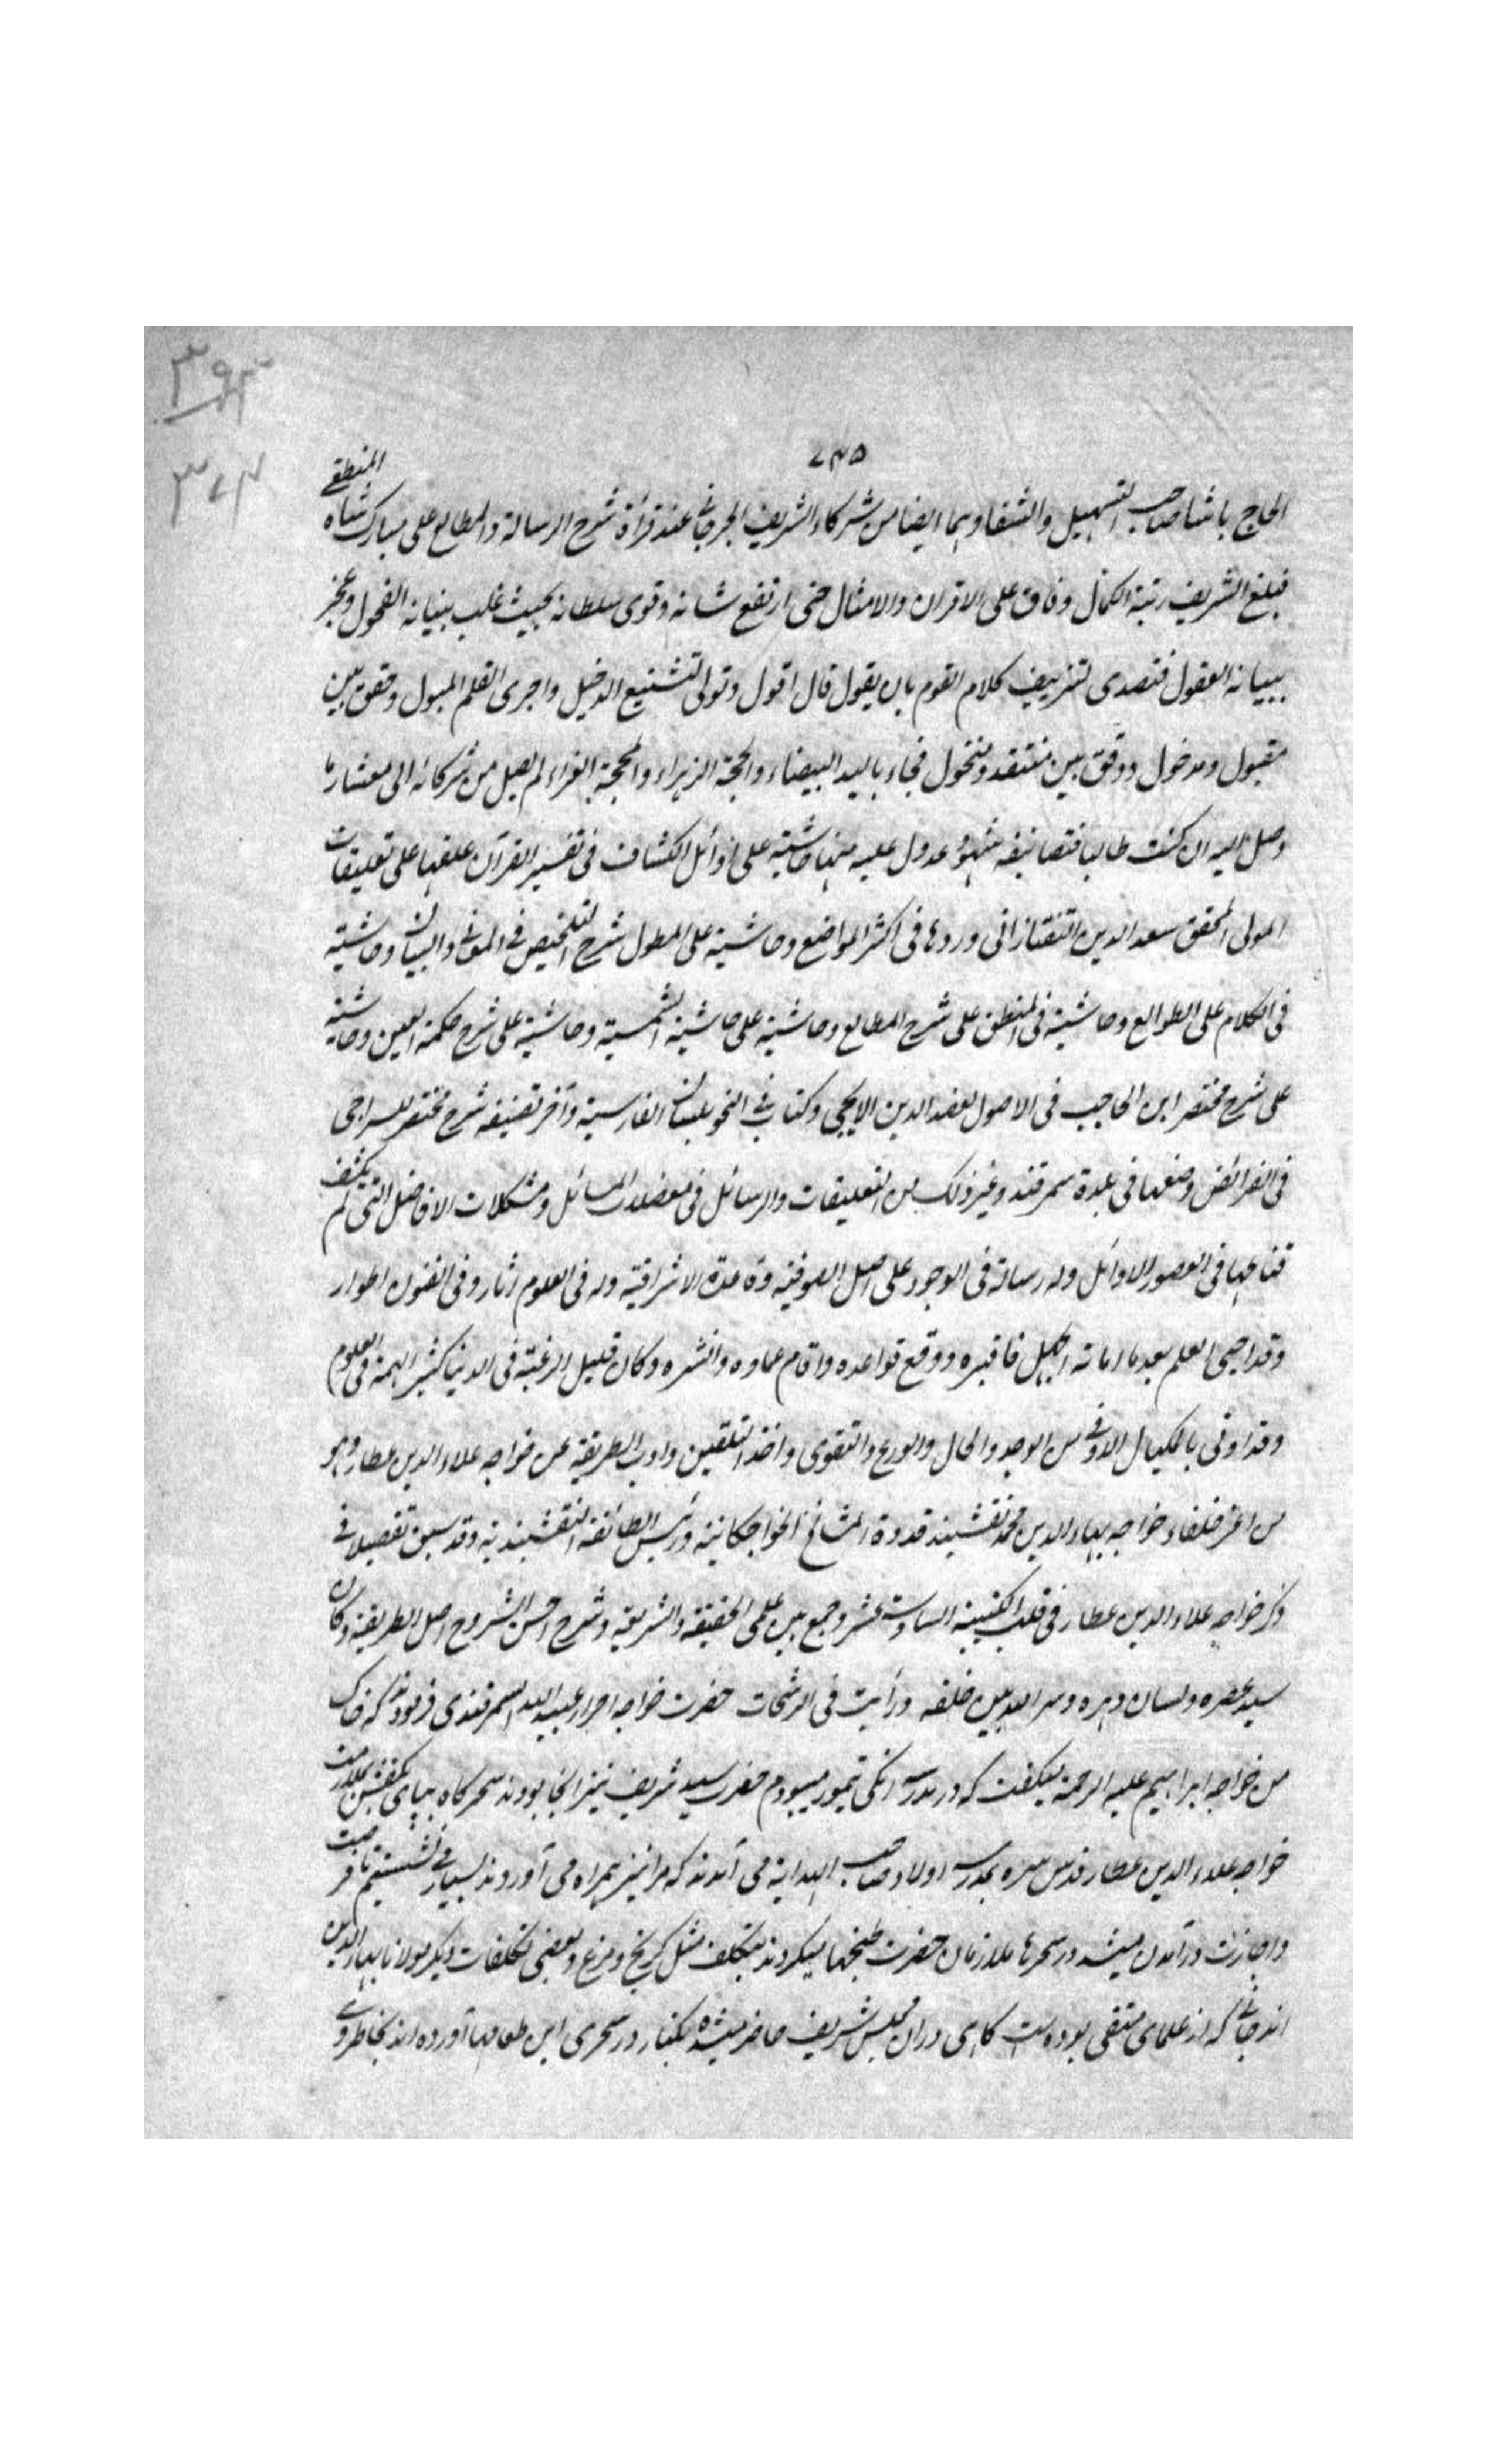 ٣٩٣
٣٧٤
٧٤٥
الحاج باشا صاحب التسهيل والشفا وهما ايضا من شركاء الشريف الجرجاني عند قرأة شرح الرسالة والمطالع على مبارك شاه المنطقي
فبلغ الشريف رتبة الكمال وفاق على الاقران والامثال حتى ارتفع شانه وقوى سلطانه بحيث غلب ببنيانه الفحول وعجز
ببيانه العقول فتصدى لتزييف كلام القوم بان يقول قال اقول وتولى لتشنيع الدخيل واجرى القلم المبول وحقق بين
مقبول ومدخول ووفق بين منتقد ومنخول فجاء باليد البيضاء والحجة الزهراء والمحجة الغراء لم يصل من شركائه الى معشار ما
وصل اليه ان كنت طالبا فتصانيفه شهود عدول عليه منها حاشية على اوائل الكشاف فى تفسير القرآن علقها على تعليقات
المولى المحقق سعد الدين التفتازانى وردها فى اكثر المواضع وحاشية على المطول شرح التلخيص فى المعانى والبيان وحاشية
فى الكلام على الطوالع وحاشية فى المنطق على شرح المطالع وحاشية على حاشية الشمسية وحاشية على شرح حكمة العين وحاشية
على شرح مختصر ابن الحاجب فى الاصول لعضد الدين الايجى وكتاب فى النحو بلسان الفارسية وآخر تصنيفه شرح مختصر لسراجى
فى الفرائض وضعها فى بلدة سمرقند وغير ذلك من التعليقات والرسائل فى معضلات المسائل ومشكلات الافاضل التى لم يكشف
قناعها فى العصور الاوائل وله رسالة فى الوجود على اصل الصوفية وقاعدة الاشراقية وله فى العلوم اثار وفى الفنون اطوار
وقد احيى العلم بعد ما اماته الجهل فاقبره ووقع قواعده واقام عماده وانشره وكان قليل الرغبة فى الدنيا كثير الهمة فى العلوم
وقد اوتى بالمكيال الاوفى من الوجد والحال والورع والتقوى واخذ التلقين واداب الطريقة عن خواجه علاء الدين عطار وهو
من اعز خلفاء خواجه بهاء الدين محمد نقشبند قدوة المشايخ الخواجكانية ورئيس الطائفة النقشبندية وقد سبق تفصيلا فى
ذكر خواجه علاء الدين عطار فى قلب الكتيبة السادسة عشر وجمع بين علمى الحقيقة والشريعة وشرح احسن الشروح اصل الطريقة وكان
سيد عصره ولسان دهره وسر الله بين خلقه ورأيت فى الرشحات حضرت خواجه احرار عبيد الله السمرقندى فرمودند كه خال
من خواجه ابراهيم عليه الرحمة ميكفت كه در مدرسه انكى تيمور ميبودم حضرت سيد شريف نيز انجا بودند سحركاه بپاى كفش بملازمت
خواجه علاء الدين عطار قدس سره بمدرسه اولاد صاحب الهداية مى آمدند كه مرا نيز همراه مى آوردند بسيار مى نشستيم تا فرصت
واجازت درآمدن ميشد در سحرها ملازمان حضرت طبخها ميكردند بتكلف مثل كرنج ومرغ وبعضى تكلفات ديكر مولانا بهاء الدين
اندجانى كه از علماى متقى بوده است كاهى دران مجلس شريف حاضر ميشده يكبار در سحرى اين طعامها آورده اند بخاطر وى